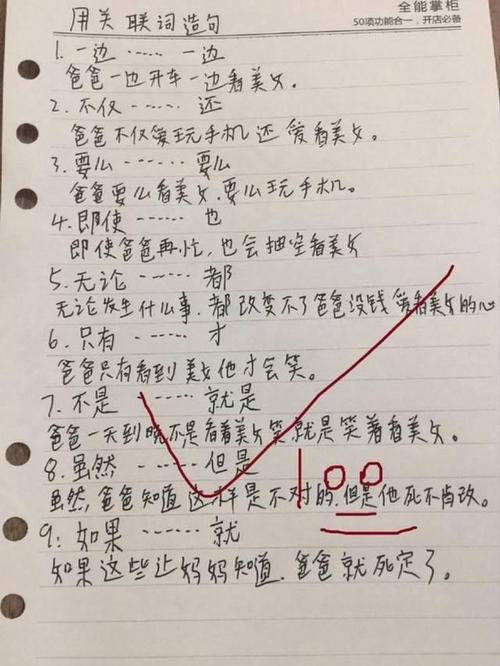 全能掌柜
50项功能合一，开店必备
用关联词造句
1. 一边 …… 一边
爸爸一边开车一边看美女。
2. 不仅 …… 还
爸爸不仅爱玩手机还爱看美女。
3. 要么 …… 要么
爸爸要么看美女，要么玩手机。
4. 即使 …… 也
即使爸爸再忙，也会抽空看美女
5. 无论 …… 都
无论发生什么事，都改变不了爸爸没钱爱看美女的心
6. 只有 …… 才
爸爸只有看到美女他才会笑。
7. 不是 …… 就是
爸爸一天到晚不是看着美女笑，就是笑着看美女。
8. 虽然 …… 但是
虽然，爸爸知道这样是不对的，但是他死不肯改。
100
9: 如果 …… 就
如果这些让妈妈知道，爸爸就死定了。